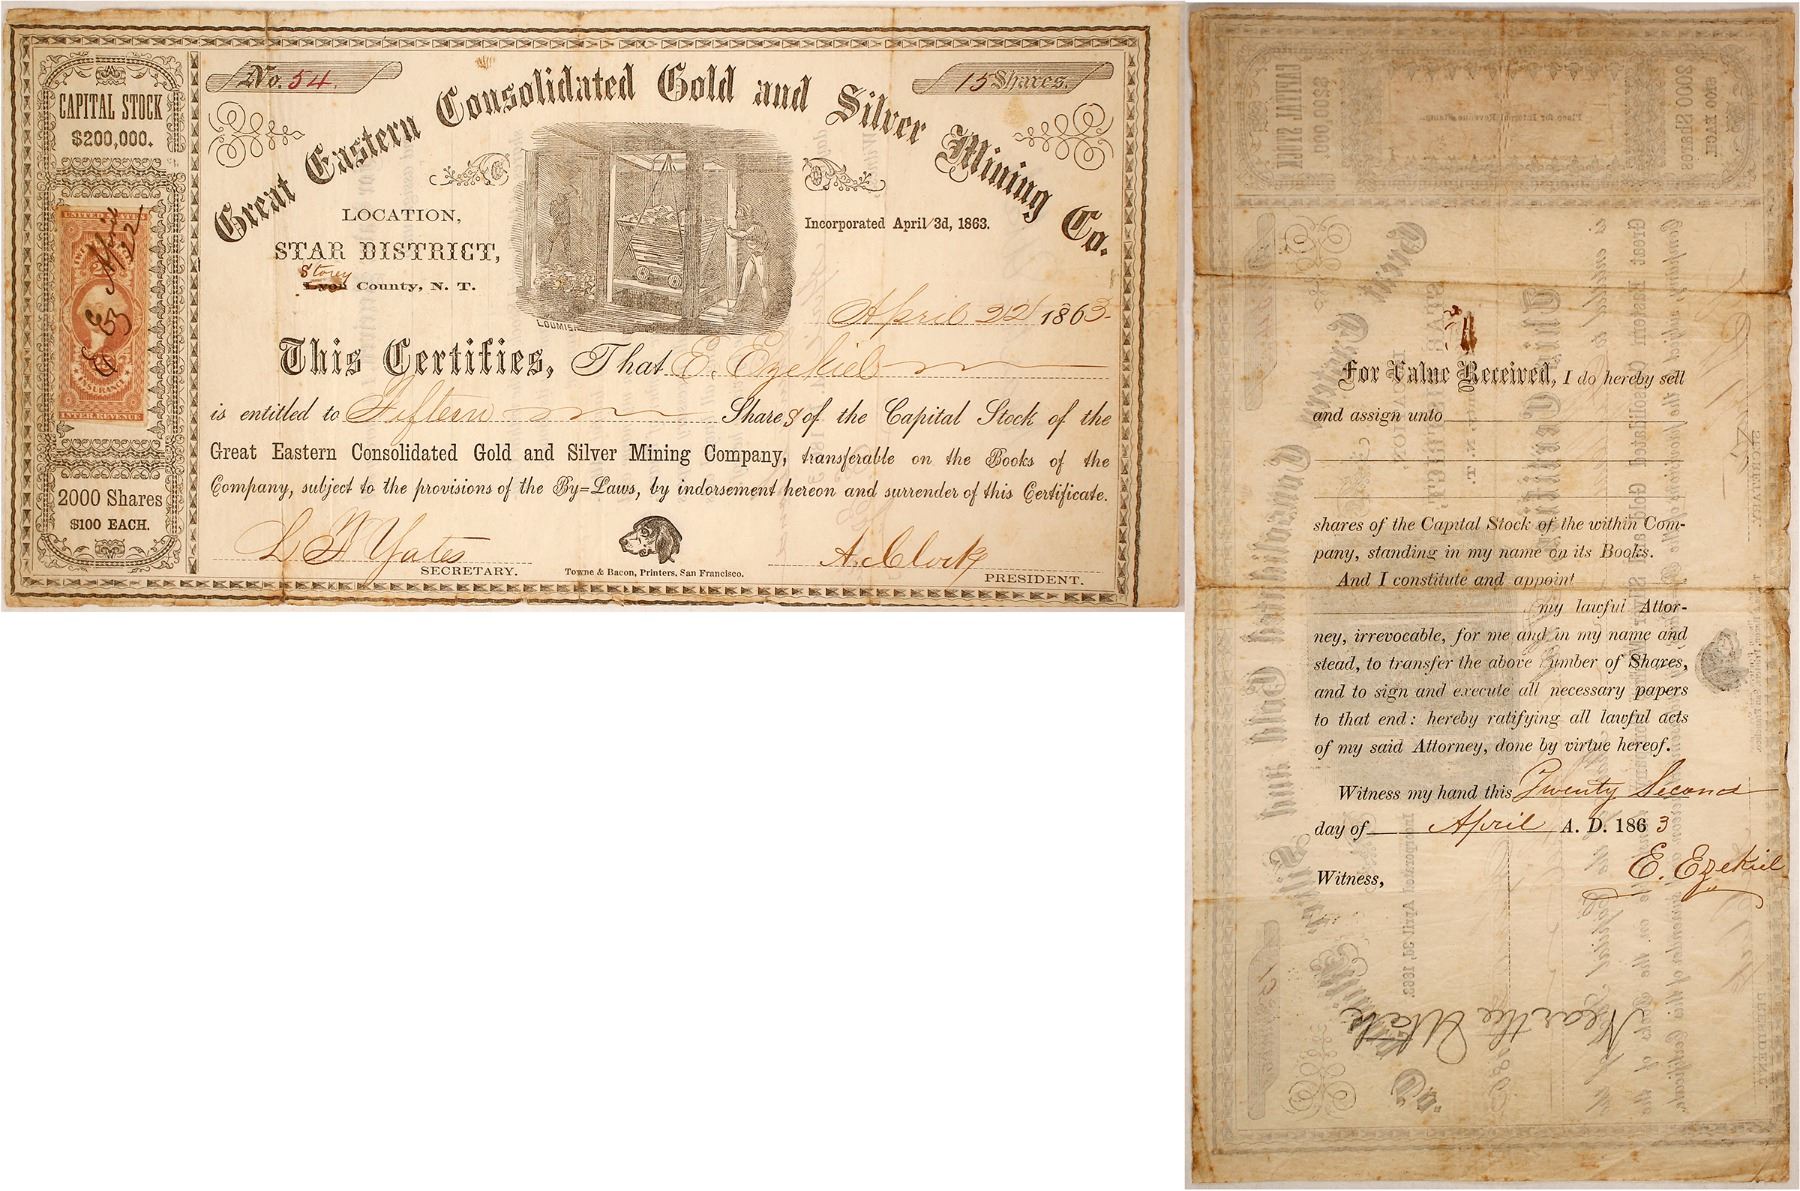 No. 54.
15 Shares.
Great Eastern Consolidated Gold and Silver Mining Co.
CAPITAL STOCK
$200,000.
LOCATION,
STAR DISTRICT,
Storey
Lyon County, N. T.
Incorporated April 3d, 1863.
UNITED STATES
E E April
22
INSURANCE
INTER. REVENUE
LOUMIS
April 22d 1863.
This Certifies, That E. Ezekiel
is entitled to Fifteen Shares of the Capital Stock of the
Great Eastern Consolidated Gold and Silver Mining Company, transferable on the Books of the
Company, subject to the provisions of the By=Laws, by indorsement hereon and surrender of this Certificate.
2000 Shares
$100 EACH.
L W Yates
SECRETARY.
Towne & Bacon, Printers, San Francisco.
A. Clock
PRESIDENT.
For Value Received, I do hereby sell
and assign unto
shares of the Capital Stock of the within Com-
pany, standing in my name on its Books.
And I constitute and appoint
my lawful Attor-
ney, irrevocable, for me and in my name and
stead, to transfer the above number of Shares,
and to sign and execute all necessary papers
to that end: hereby ratifying all lawful acts
of my said Attorney, done by virtue hereof.
Witness my hand this Twenty Second
day of April A. D. 1863
Witness,
E. Ezekiel
Near the Utah